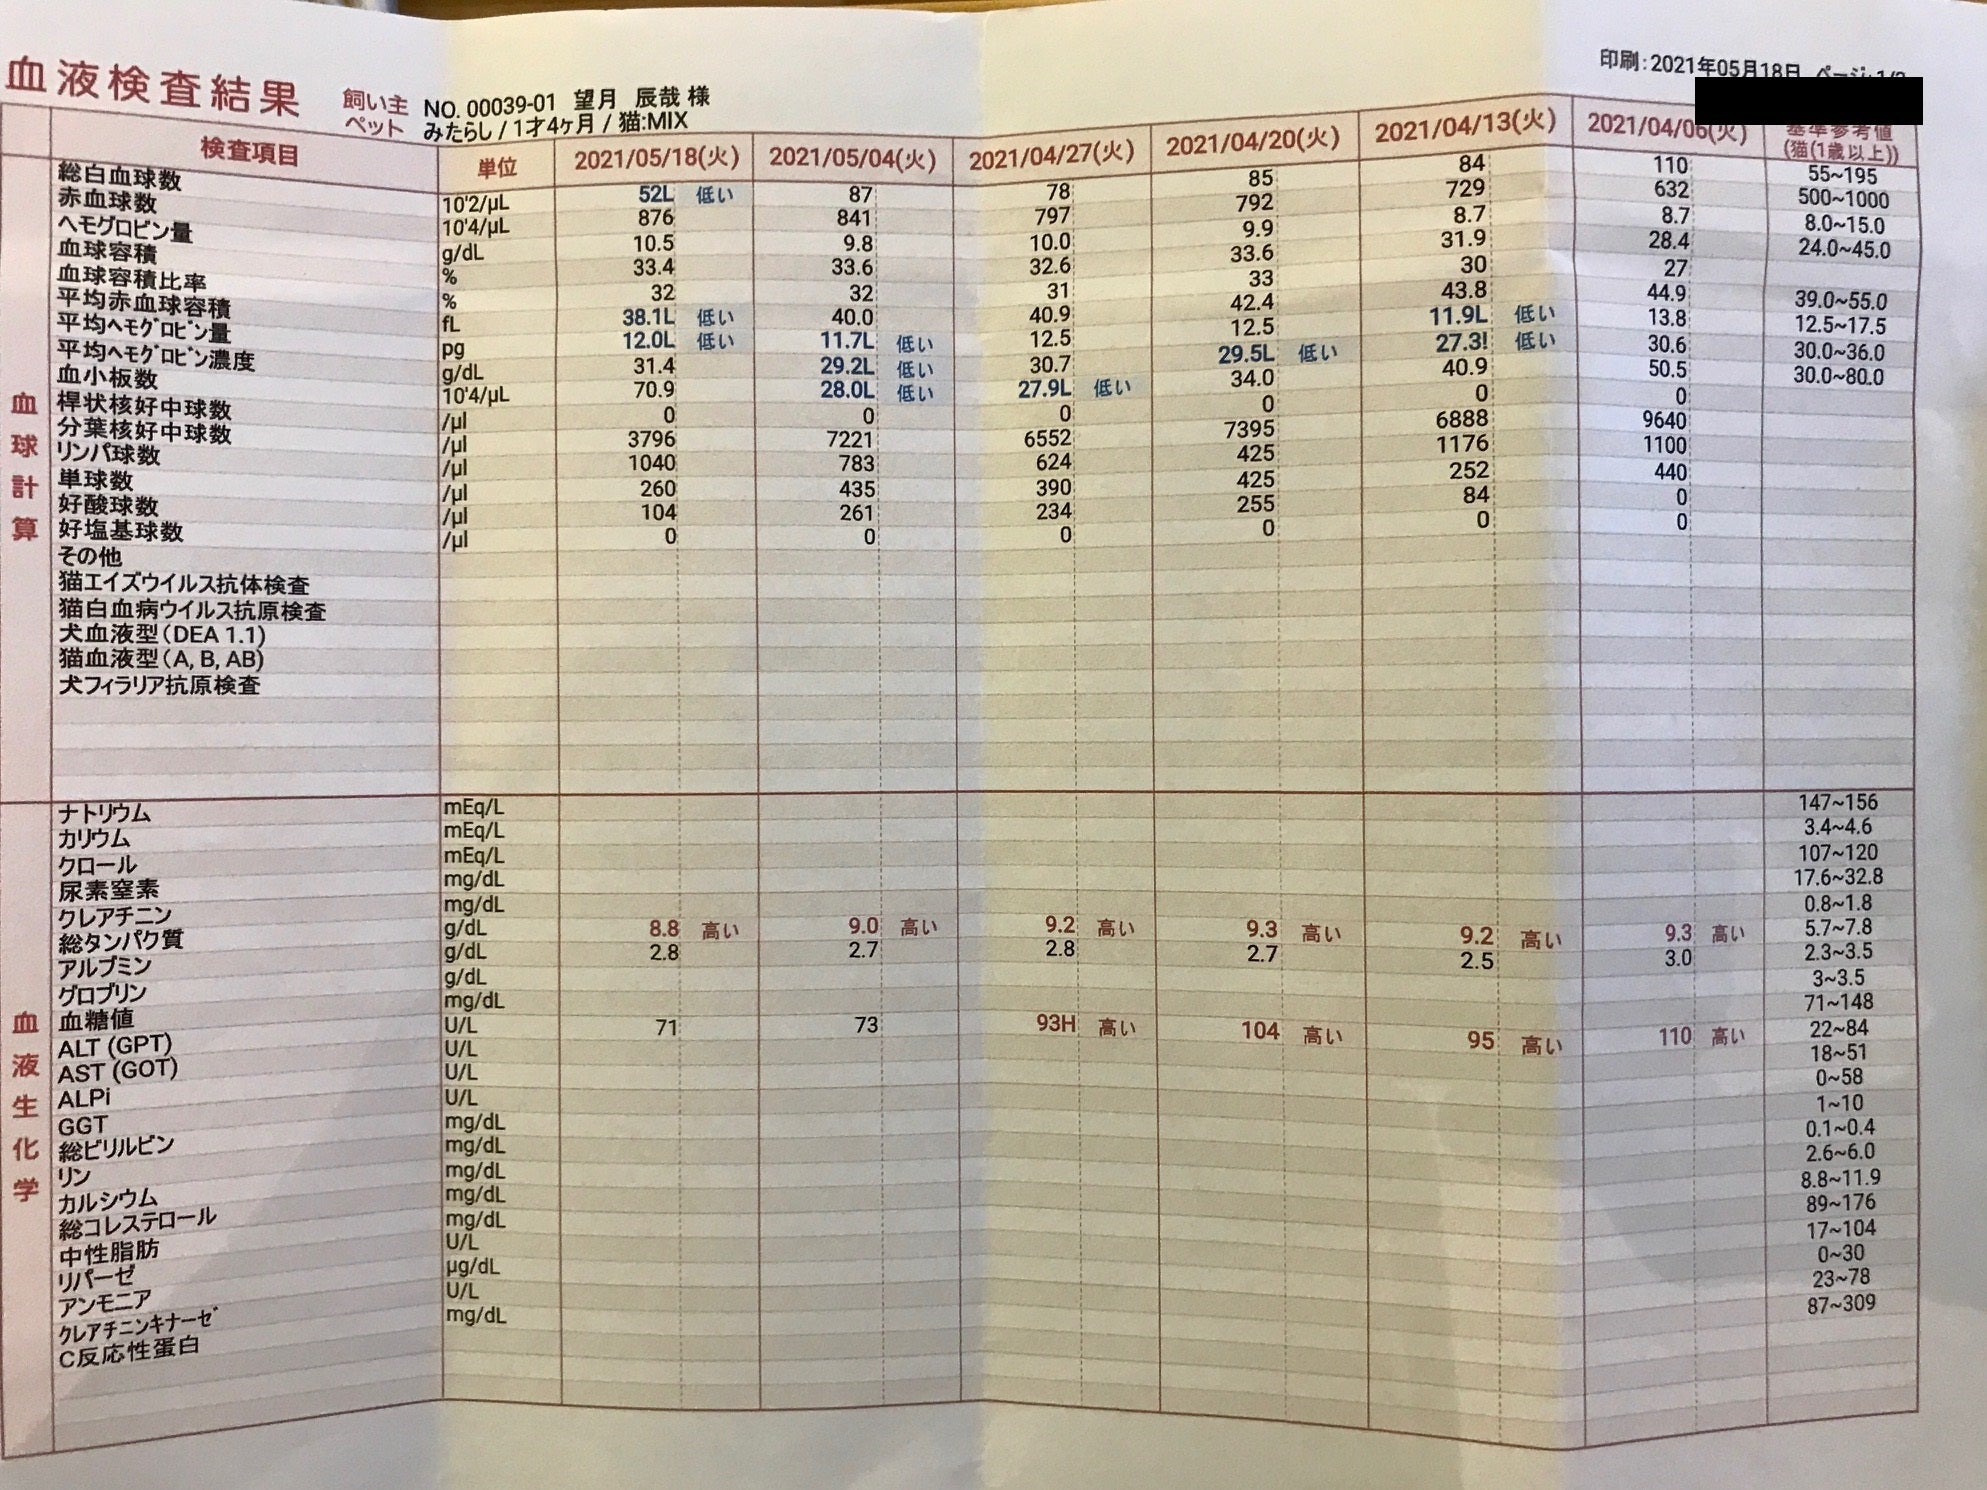 血液検査結果
飼い主 NO. 00039-01 望月 辰哉 様
ペット みたらし / 1才4ヶ月 / 猫:MIX
印刷:2021年05月18日
検査項目 単位 2021/05/18(火) 2021/05/04(火) 2021/04/27(火) 2021/04/20(火) 2021/04/13(火) 2021/04/06(火) 基準参考値
(猫(1歳以上))
血球計算
総白血球数 10'2/μL 52L 低い 87 78 85 84 110 55~195
赤血球数 10'4/μL 876 841 797 792 729 632 500~1000
ヘモグロビン量 g/dL 10.5 9.8 10.0 9.9 8.7 8.7 8.0~15.0
血球容積 % 33.4 33.6 32.6 33.6 31.9 28.4 24.0~45.0
血球容積比率 % 32 32 31 33 30 27
平均赤血球容積 fL 38.1L 低い 40.0 40.9 42.4 43.8 44.9 39.0~55.0
平均ヘモグロビン量 pg 12.0L 低い 11.7L 低い 12.5 12.5 11.9L 低い 13.8 12.5~17.5
平均ヘモグロビン濃度 g/dL 31.4 29.2L 低い 30.7 29.5L 低い 27.3! 低い 30.6 30.0~36.0
血小板数 10'4/μL 70.9 28.0L 低い 27.9L 低い 34.0 40.9 50.5 30.0~80.0
桿状核好中球数 /μl 0 0 0 0 0 0
分葉核好中球数 /μl 3796 7221 6552 7395 6888 9640
リンパ球数 /μl 1040 783 624 425 1176 1100
単球数 /μl 260 435 390 425 252 440
好酸球数 /μl 104 261 234 255 84 0
好塩基球数 /μl 0 0 0 0 0 0
その他
猫エイズウイルス抗体検査
猫白血病ウイルス抗原検査
犬血液型(DEA 1.1)
猫血液型(A, B, AB)
犬フィラリア抗原検査
血液生化学
ナトリウム mEq/L 147~156
カリウム mEq/L 3.4~4.6
クロール mEq/L 107~120
尿素窒素 mg/dL 17.6~32.8
クレアチニン mg/dL 0.8~1.8
総タンパク質 g/dL 8.8 高い 9.0 高い 9.2 高い 9.3 高い 9.2 高い 9.3 高い 5.7~7.8
アルブミン g/dL 2.8 2.7 2.8 2.7 2.5 3.0 2.3~3.5
グロブリン g/dL 3~3.5
血糖値 mg/dL 71~148
ALT (GPT) U/L 71 73 93H 高い 104 高い 95 高い 110 高い 22~84
AST (GOT) U/L 18~51
ALPi U/L 0~58
GGT U/L 1~10
総ビリルビン mg/dL 0.1~0.4
リン mg/dL 2.6~6.0
カルシウム mg/dL 8.8~11.9
総コレステロール mg/dL 89~176
中性脂肪 mg/dL 17~104
リパーゼ U/L 0~30
アンモニア μg/dL 23~78
クレアチニンキナーゼ U/L 87~309
C反応性蛋白 mg/dL